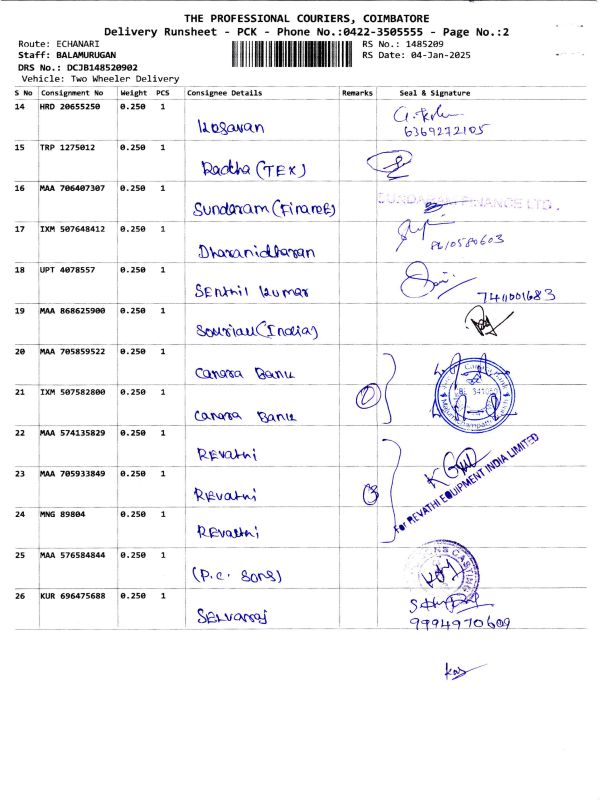 THE PROFESSIONAL COURIERS, COIMBATORE
Delivery Runsheet - PCK - Phone No.:0422-3505555 - Page No.:2
Route: ECHANARI RS No.: 1485209
Staff: BALAMURUGAN RS Date: 04-Jan-2025
DRS No.: DCJB148520902
Vehicle: Two Wheeler Delivery
S No Consignment No Weight PCS Consignee Details Remarks Seal & Signature
14 HRD 20655250 0.250 1 Kosavan
6369272105
15 TRP 1275012 0.250 1 Radha (TEX)
16 MAA 706407307 0.250 1 Sundaram (Finance) SUNDARAM FINANCE LTD.
17 IXM 507648412 0.250 1 Dharanidharan
18 UPT 4078557 0.250 1 Senthil Kumar
7411001683
19 MAA 868625900 0.250 1 Souriau (India)
20 MAA 705859522 0.250 1 Canara Bank
21 IXM 507582800 0.250 1 Canara Bank
22 MAA 574135829 0.250 1 Revathi
23 MAA 705933849 0.250 1 Revathi 3
For REVATHI EQUIPMENT INDIA LIMITED
24 MNG 89804 0.250 1 Revathi
25 MAA 576584844 0.250 1 (P.C. Sons)
26 KUR 696475688 0.250 1 Selvaraj
9994970609